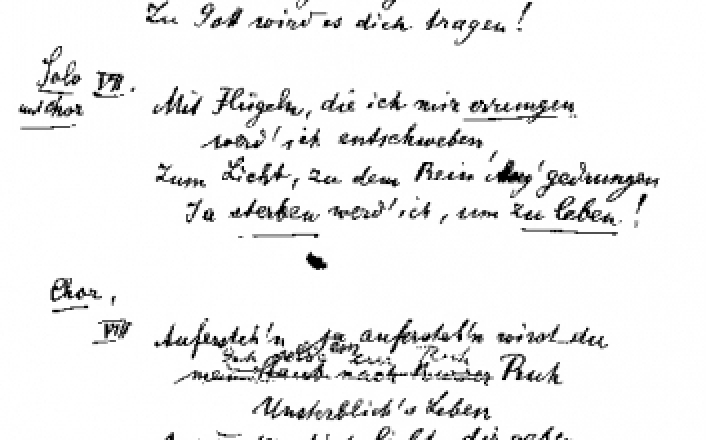 Zu Gott wird es dich tragen!
Solo VII.
und Chor
Mit Flügeln, die ich mir errungen
werd' ich entschweben,
Zum Licht, zu dem kein Aug' gedrungen
Ja sterben werd' ich, um zu leben!
Chor,
VIII
Aufersteh'n ja aufersteh'n wirst du
mein Staub nach kurzer Ruh
Unsterblich's Leben